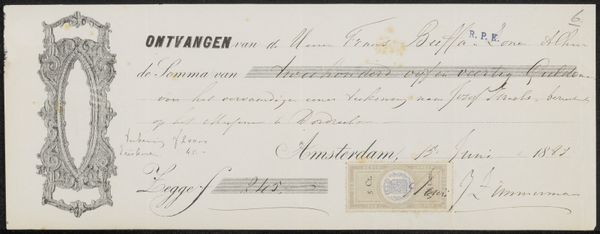 6
R.P.K.
ONTVANGEN van de Heeren Frans Buffa & Zonen Alhier
de Somma van tweehonderd vijf en veertig Gulden
voor het vervaardigen eener teekening naar Jozef Israels,
op het Museum te Dordrecht
Amsterdam, 15 Juni 1883
Zegge f 245.-
5 Ct.
J Zimmerman